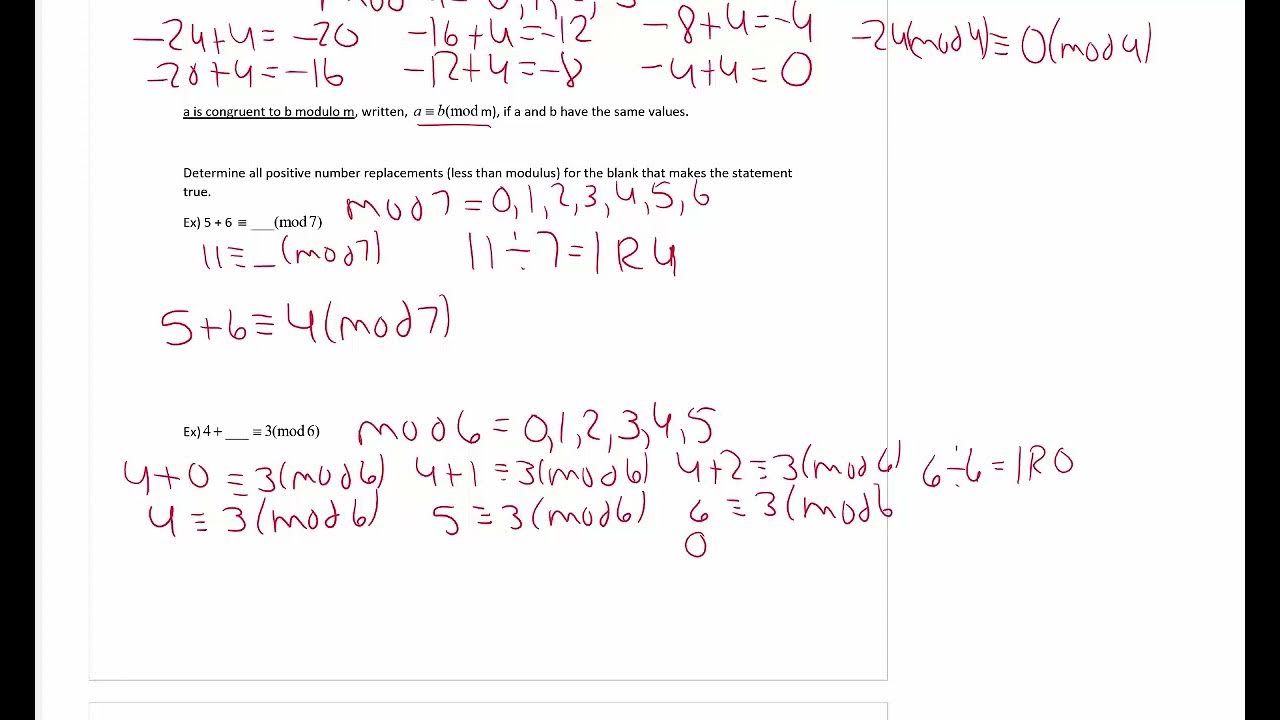 -24+4= -20 -16+4=-12 -8+4=-4 -24(mod4)≡ 0(mod4)
-20+4=-16 -12+4=-8 -4+4=0
a is congruent to b modulo m, written, a ≡ b(mod m), if a and b have the same values.
Determine all positive number replacements (less than modulus) for the blank that makes the statement
true.
mod7 = 0,1,2,3,4,5,6
Ex) 5 + 6 ≡ ___(mod 7)
11≡_(mod7) 11÷7=1R4
5+6≡4(mod7)
Ex) 4 + ___ ≡ 3(mod 6) mod6 = 0,1,2,3,4,5
4+0 ≡3(mod6) 4+1 ≡3(mod6) 4+2≡3(mod6) 6÷6=1R0
4≡3(mod6) 5≡3(mod6) 6≡3(mod6
0